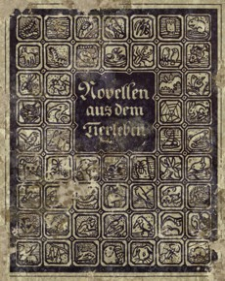 Novellen
aus dem
Tierleben